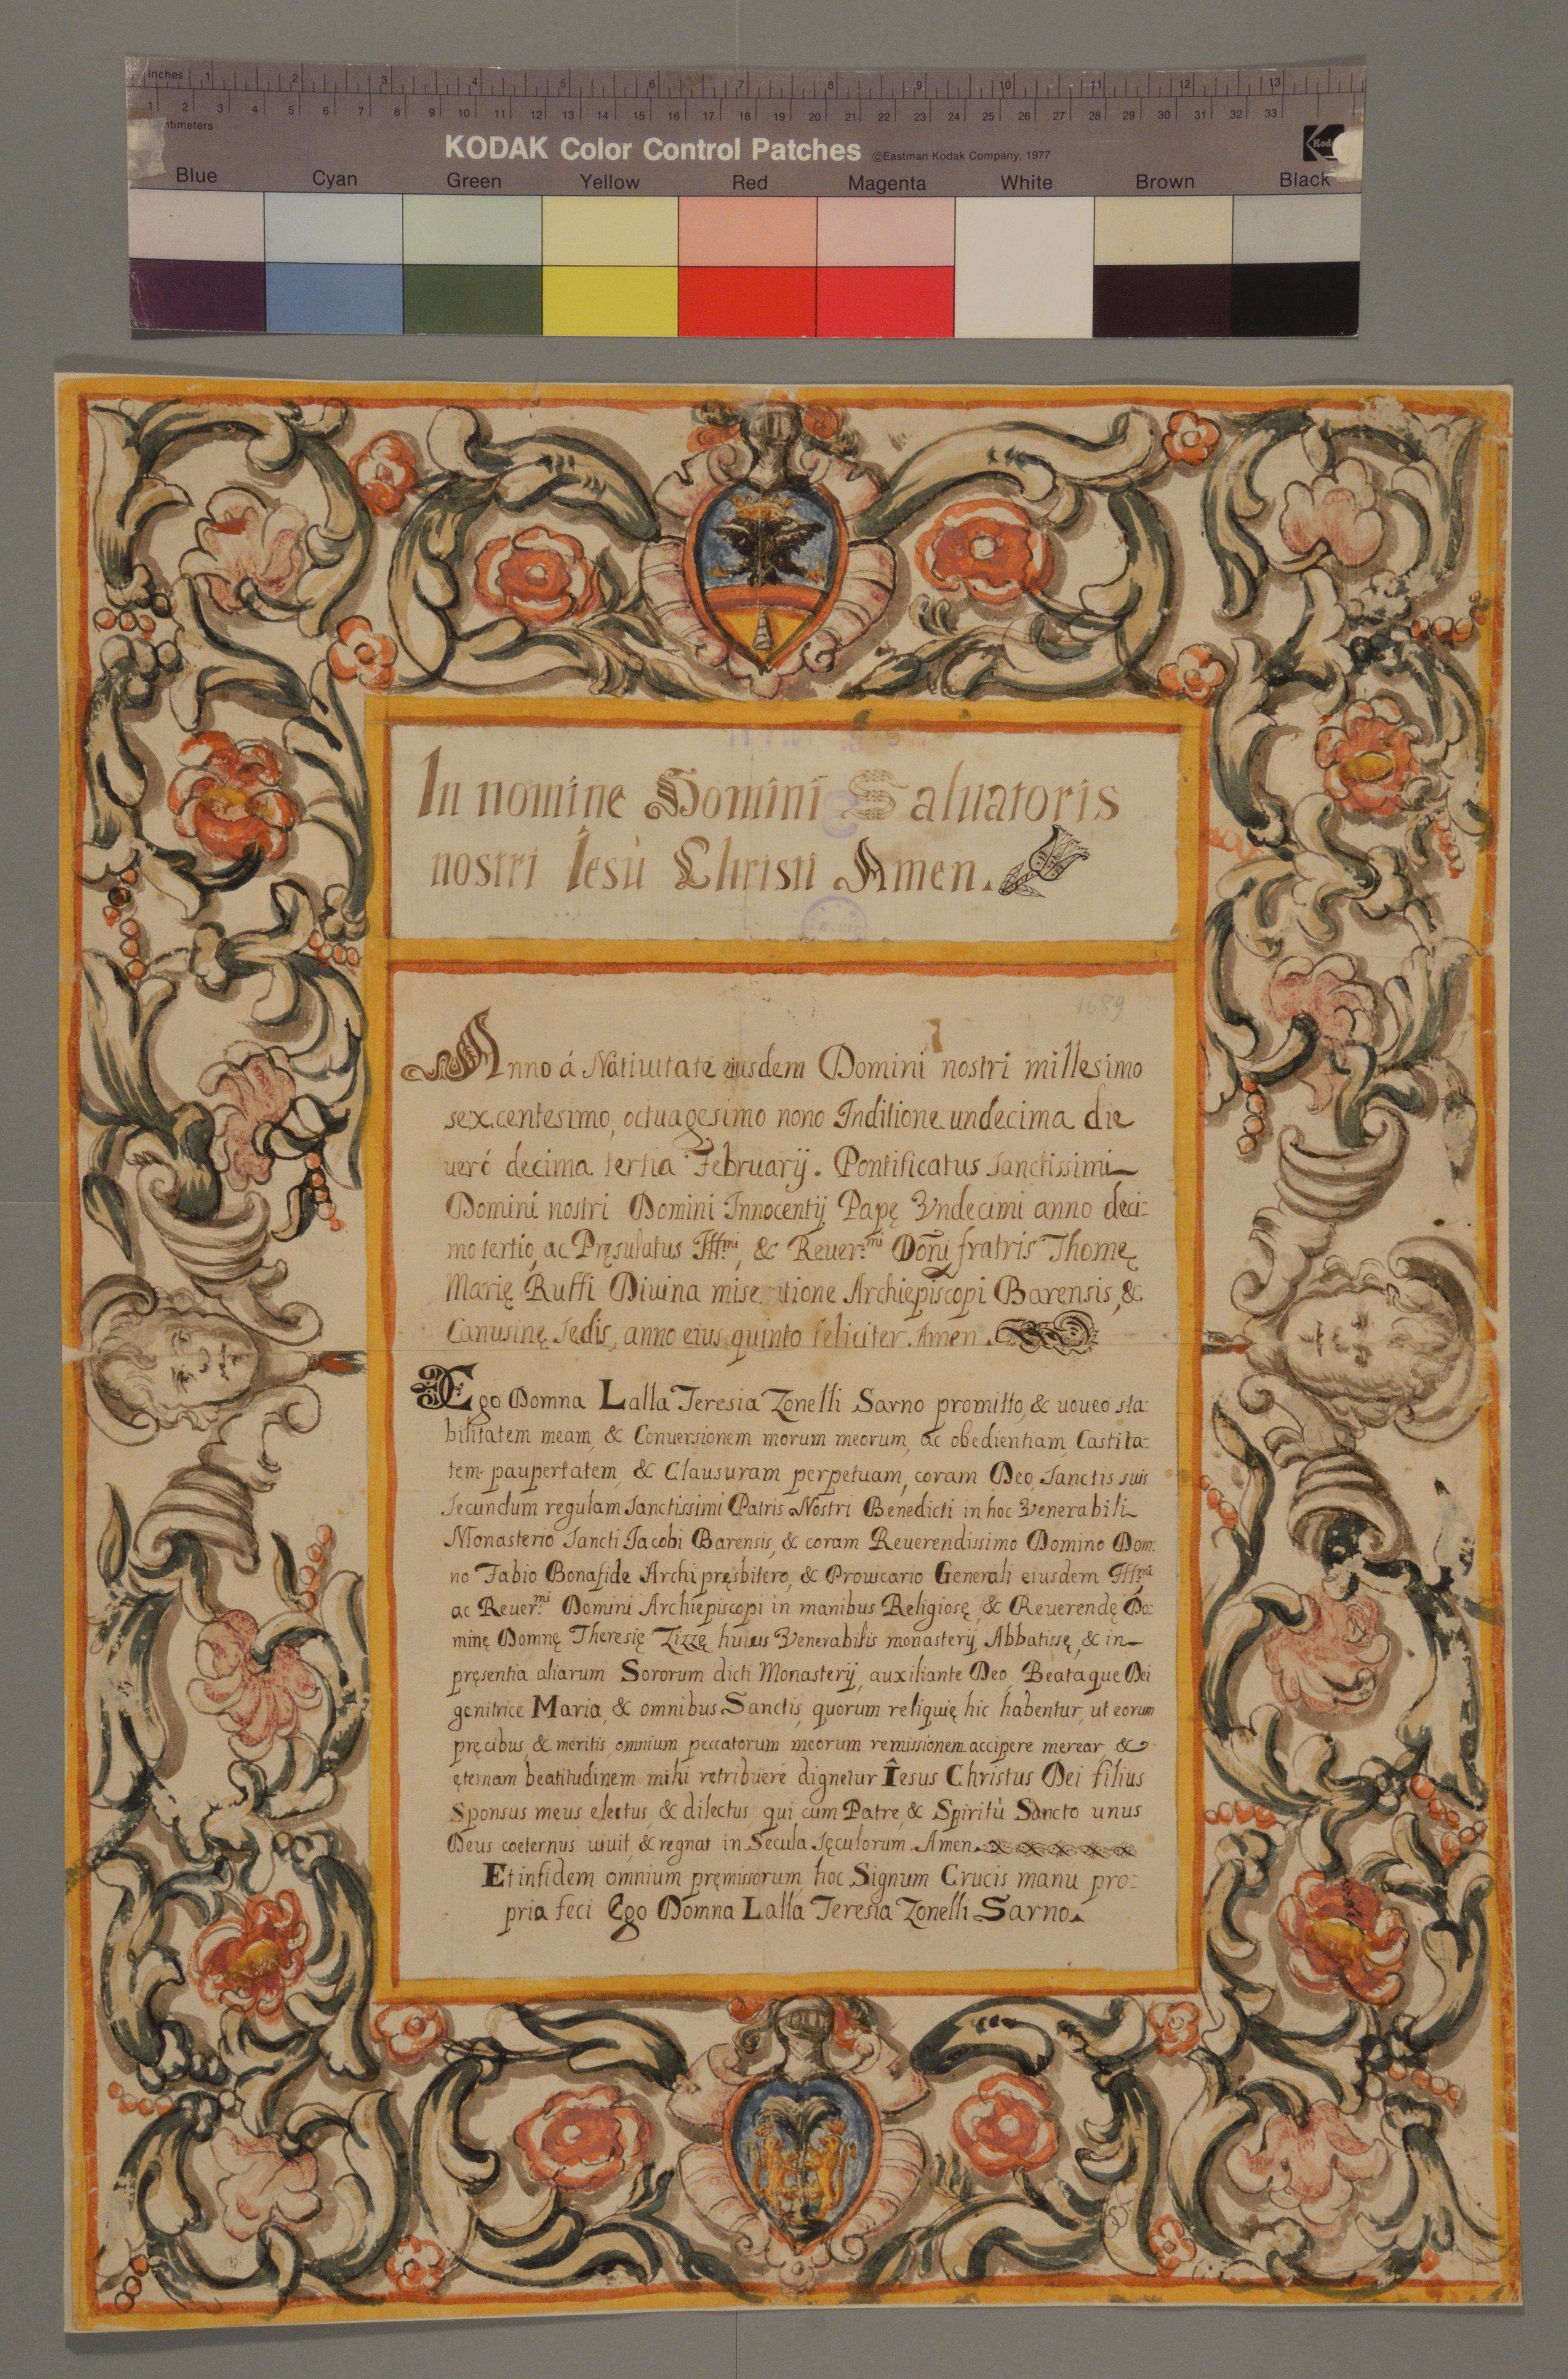 Inches 1 2 3 4 5 6 7 8 9 10 11 12 13
1 2 3 4 5 6 7 8 9 10 11 12 13 14 15 16 17 18 19 20 21 22 23 24 25 26 27 28 29 30 31 32 33
KODAK Color Control Patches ©Eastman Kodak Company, 1977
Blue Cyan Green Yellow Red Magenta White Brown Black
In nomine Domini Saluatoris
nostri Iesù Christi Amen.
1689
Anno á Natiuitate eiusdem Domini nostri millesimo
sexcentesimo, octuagesimo nono Inditione undecima die
ueró decima tertia Februarij. Pontificatus Sanctissimi
Domini nostri Domini Innocentij Papę Vndecimi anno deci-
mo tertio, ac Pręsulatus Ill.mi, & Reuer.mi Dom̃i fratris Thomę
Marię Ruffi Diuina miseratione Archiepiscopi Barensis, &
Canusinę Sedis, anno eius quinto feliciter. Amen.
Ego Domna Lalla Teresia Zonelli Sarno promitto, & uoueo sta-
bilitatem meam, & Conuersionem morum meorum, ac obedientiam, Castita-
tem paupertatem, & Clausuram perpetuam, coram Deo, Sanctis suis
Secundum regulam Sanctissimi Patris Nostri Benedicti in hoc Venerabili
Monasterio Sancti Jacobi Barensis, & coram Reuerendissimo Domino Dom-
no Fabio Bonafide Archipręsbitero, & Prouicario Generali eiusdem Ill.mi
ac Reuer.mi Domini Archiepiscopi in manibus Religiosę, & Reuerendę Do-
minę Domnę Theresię Zizzę huius Venerabilis monasterij Abbatissę, & in
pręsentia aliarum Sororum dicti Monasterij, auxiliante Deo, Beataque Dei
genitrice Maria, & omnibus Sanctis, quorum reliquię hic habentur, ut eorum
pręcibus, & meritis, omnium peccatorum meorum remissionem accipere merear, &
ęternam beatitudinem mihi retribuere dignetur Îesus Christus Dei filius
Sponsus meus electus, & dilectus, qui cum Patre, & Spiritù Sancto unus
Deus coeternus uiuit, & regnat in Secula Sęculorum. Amen.
Et in fidem omnium pręmissorum, hoc Signum Crucis manu pro-
pria feci Ego Domna Lalla Teresia Zonelli Sarno.